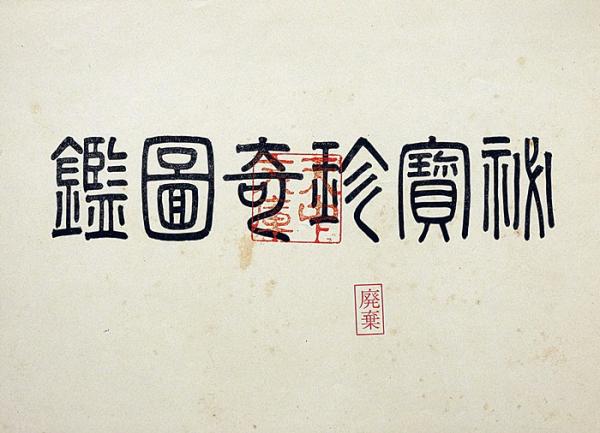 祕寶珍奇圖鑑
廃棄